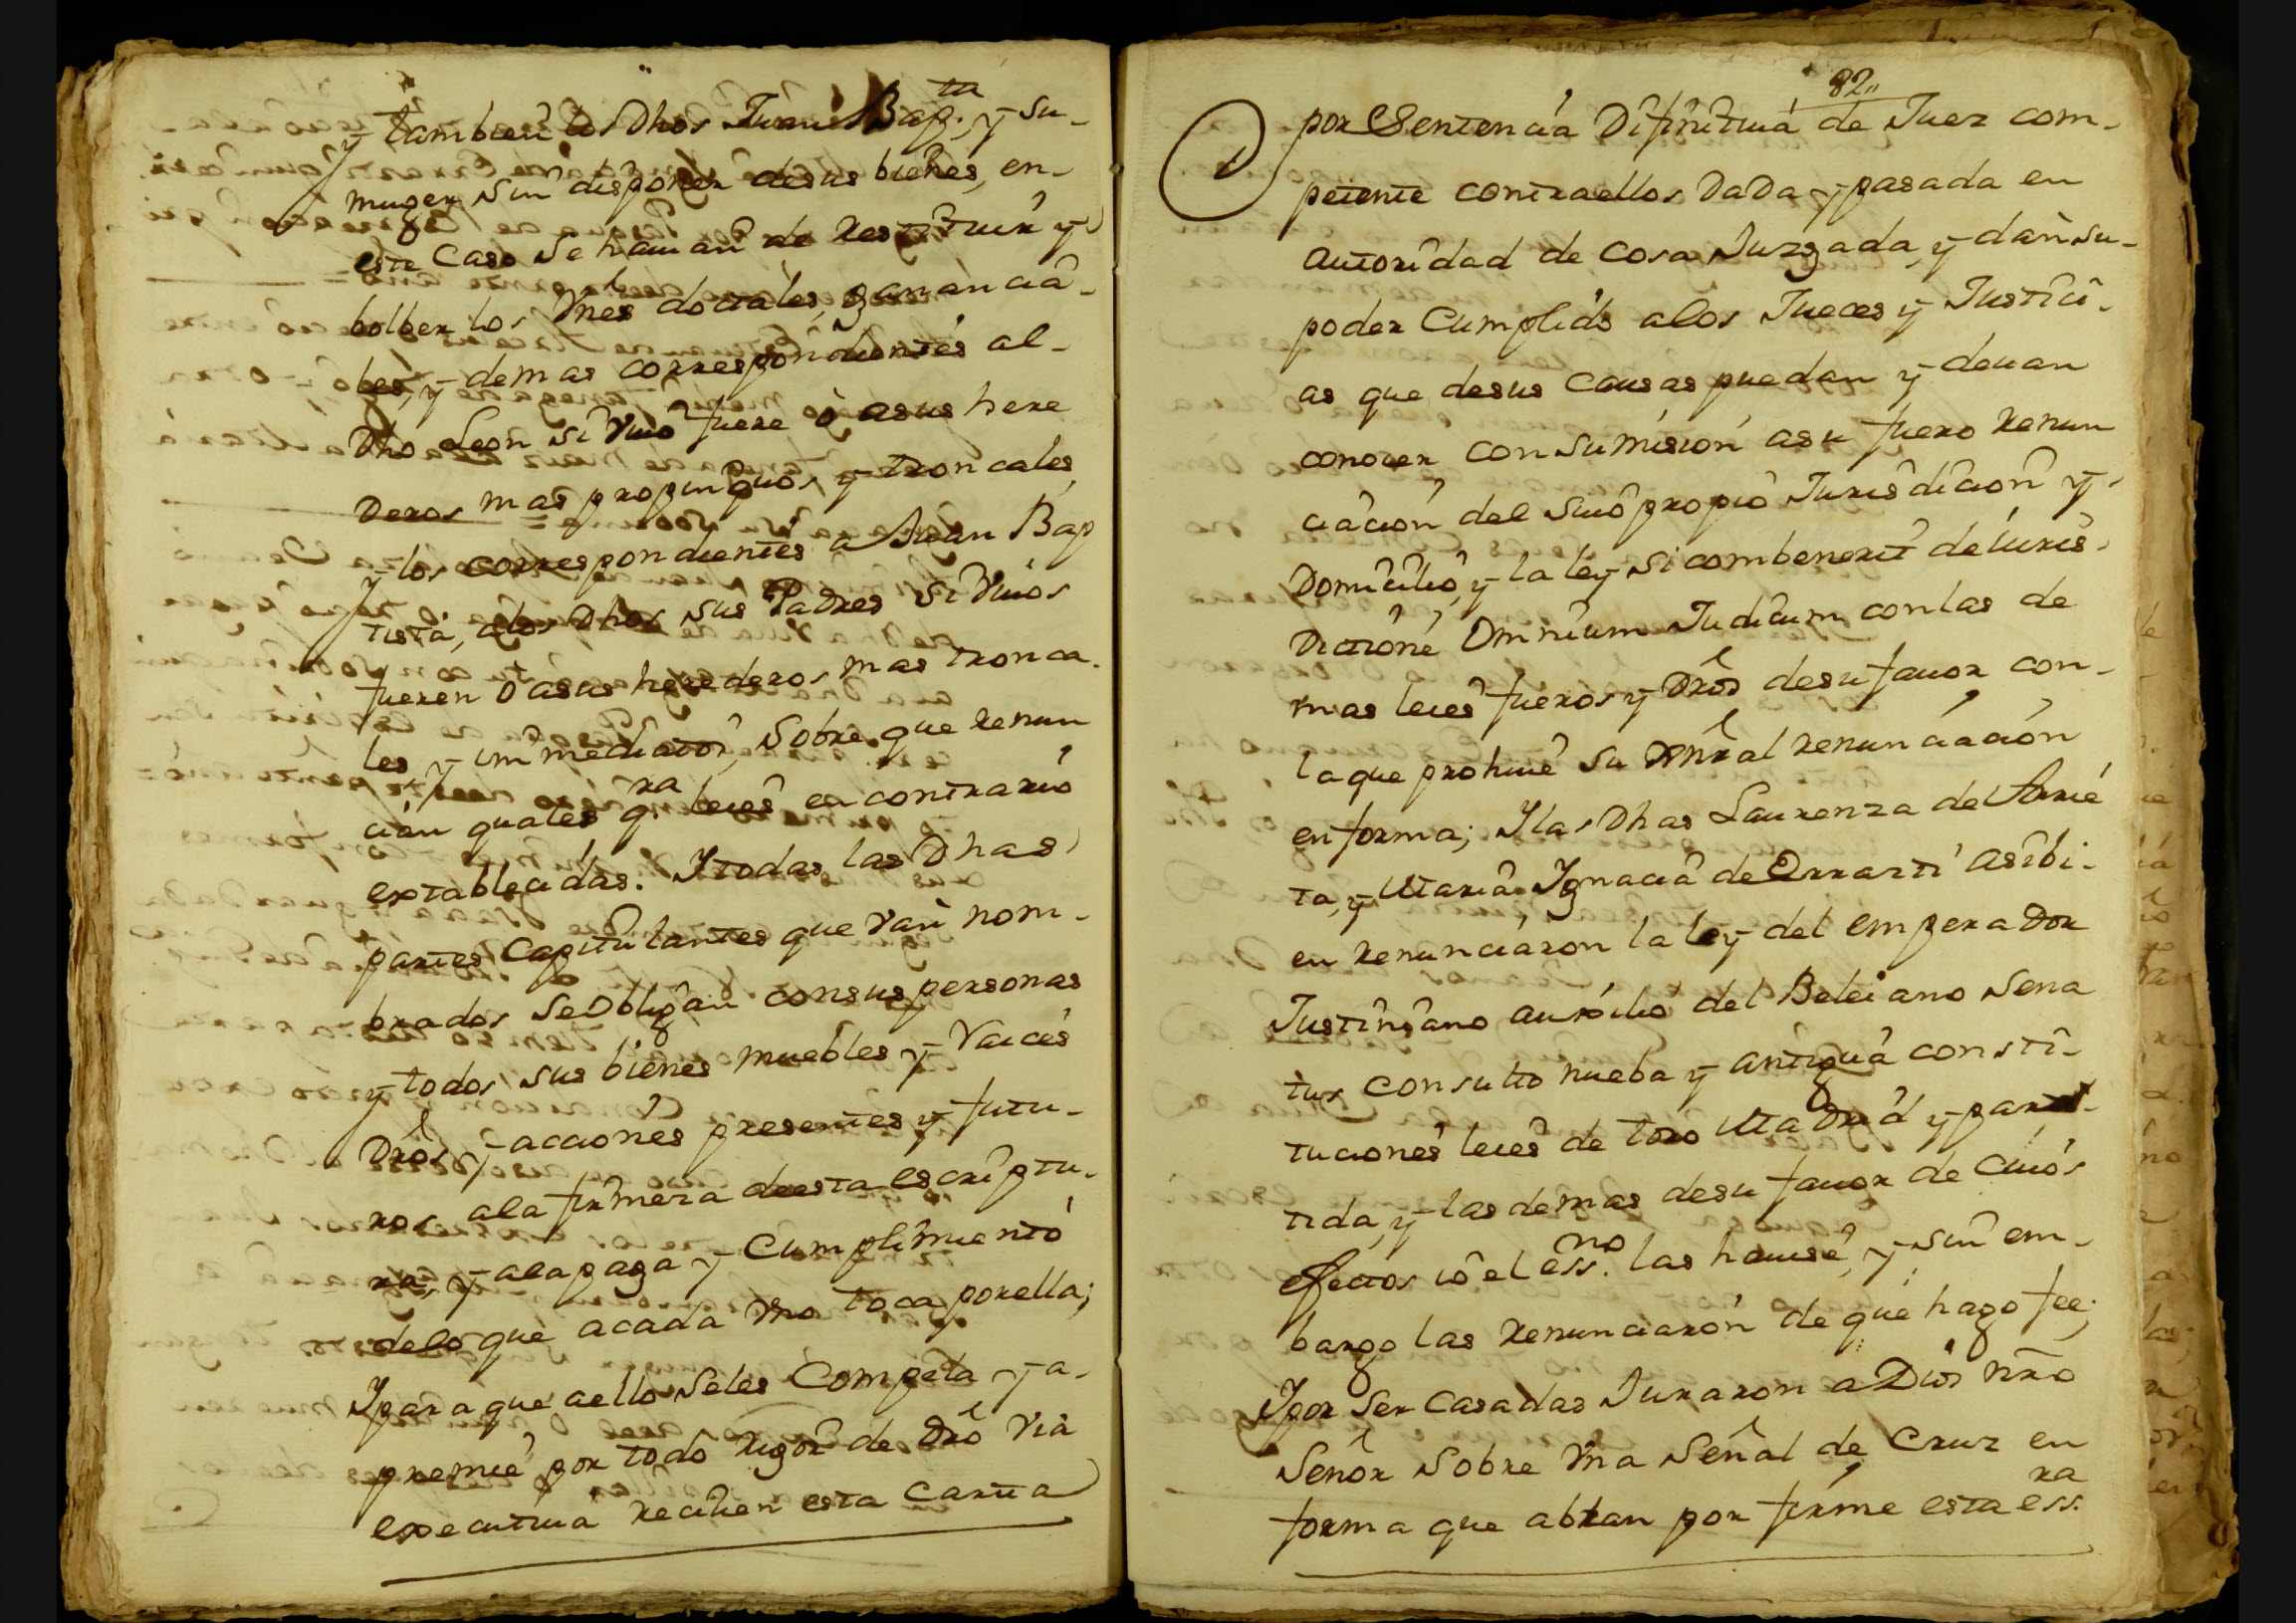 y tambien los Dhos Juan Bap.ta y su-
muger sin disponer desus bienes, en-
este Caso se hauian de Restituir y
bolber los vnes dotales, ganancia-
les, y demas correspondientes al-
Dho Leon si viuo fuere ò asus here
Deros mas propinquos y tron cales,
Y los correspondientes a Juan Bap
tista, alos Dhos sus Padres si viuos
fueren ò asus herederos mas tronca-
les y immediatos, Sobre que Renun
cian quales q.ra leies en contrario
extablecidas. Y todas las Dhas
partes Capitulantes que van nom-
brados se Obligan consus personas
y todos sus bienes muebles y Raices
Dros y acciones presentes y futu-
ros, ala firmeza deesta escriptu-
ra, y ala paga y Cumplimiento
delo que acada vno toca porella;
Y para que aello seles Compela y a-
premie por todo Rigor de Dro via
executiua Reciuen esta Carta
82,,
por Sentencia Difinitiua de Juez com-
petente contraellos DaDa y pasada en
autoridad de cosa Juzgada, y dan su-
poder Cumplido alos Jueces y Justici-
as que desus Causas puedan y deuan
conocer consumision asu fuero Renun
ciacion del suio propio Jurisdicion y
Domicilio, y la ley si combenerit de iuris-
Dictione Omnium Judicum conlas de
mas leies fueros y Dros desu fauor con-
la que prohiue su Gnral Renunciacion
en forma; Y las Dhas Laurenza de Arrie
ta, y Maria Ignacia de Orrarti asi bi-
en Renunciaron la ley del emperador
Justiniano auxilio del Beleiano sena
tus consulto nueba y antigua consti-
tuciones leies de toro Madrid y par-
tida, y las demas desu fauor de Cuios
efectos io el ess.no las hauise, y sin em-
bargo las Renunciaron de que hago fee;
Y por ser Casadas Juraron a Dios nro
Señor sobre vna señal de Cruz en
forma que abran por firme esta ess.ra